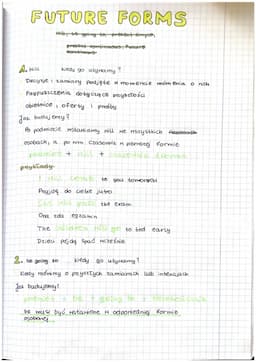 FUTURE FORMS
1. Will kiedy go używamy?
Decyzje i zamiary podjęte w momencie mówienia o nich
Przypuszczenia dotyczące przyszłości
obietnice, oferty i prośby
Jak budujemy?
W podmiocie wstawiamy will we wszystkich
osobach, a po nim czasownik w pierwszej formie
podmiot + will +
przykłady
I will see you tomorrow
Przyjdę do ciebie jutro
the exam
Ona zda egzamin
The children will go to bed early
Dzieci pójdą spać wcześnie
2. be going to kiedy go używamy?
Kiedy mówimy o przyszłych zamiarach lub intencjach
Jak budujemy?
podmiot + be + going to +
be musi być wstawione w odpowiedniej formie
osobowej